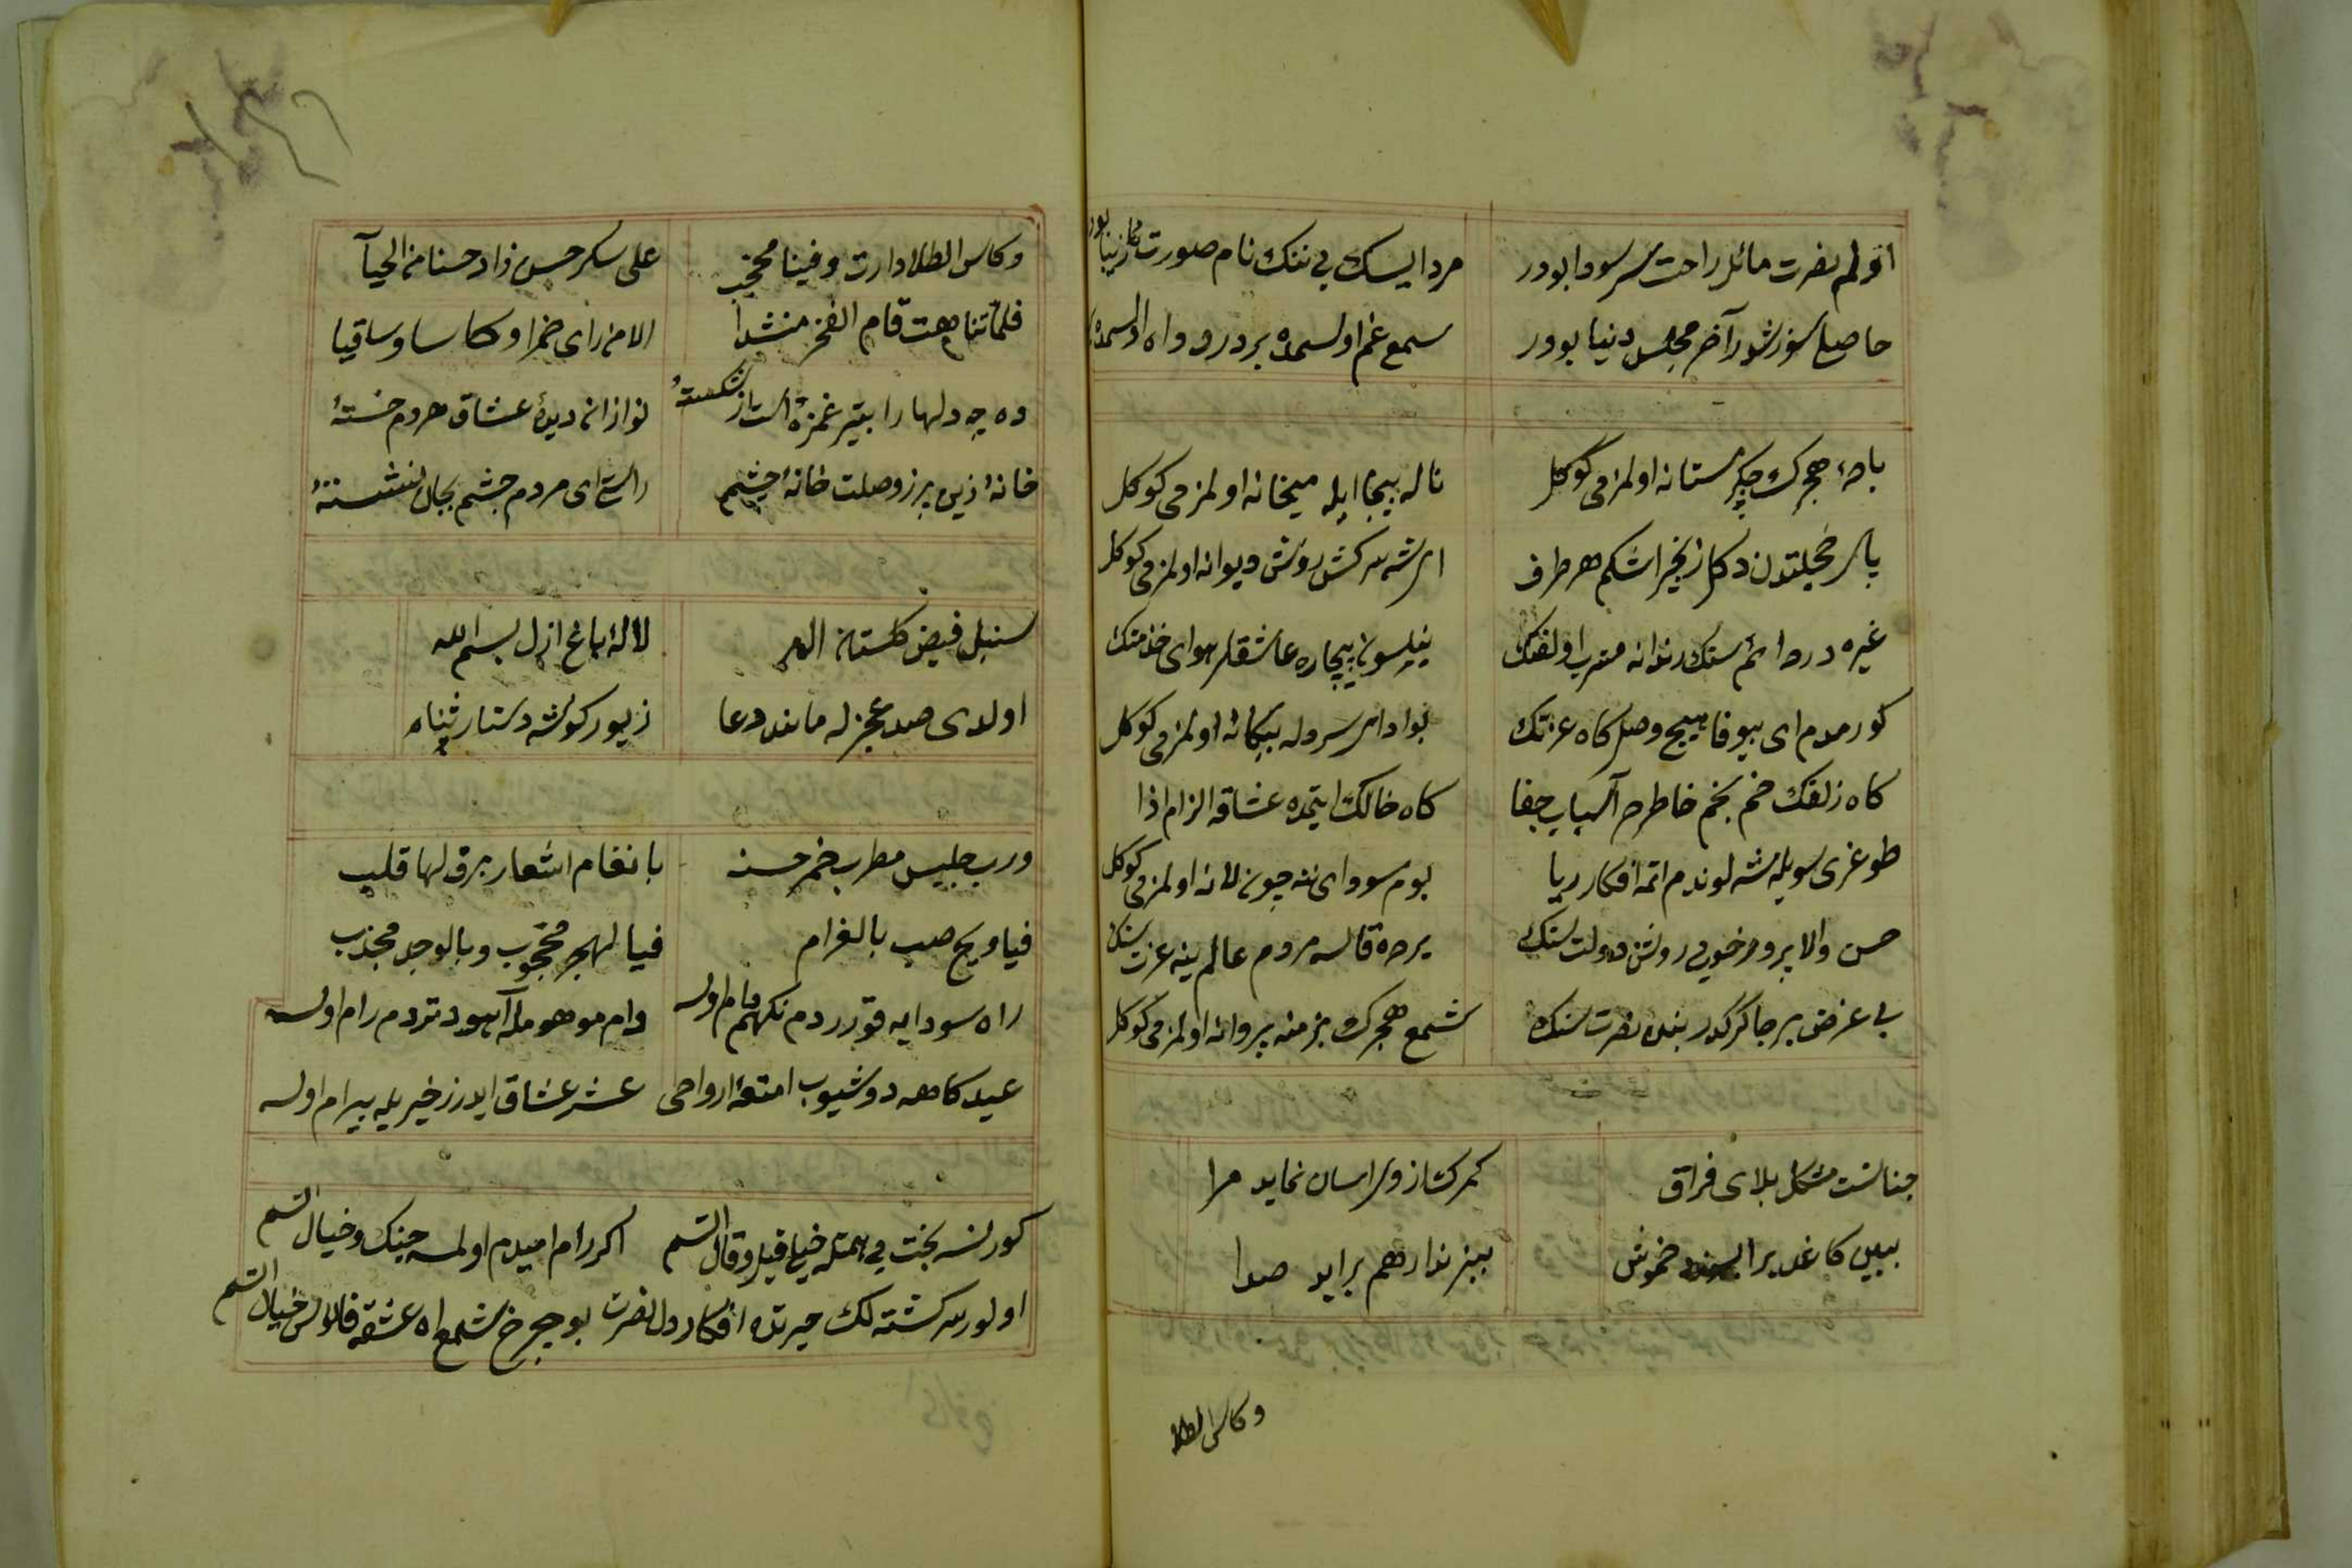 اولم نصرت مائل راحت سر سودا بودر
مرد ایسك بی ننك نام صورت زیبا بو
حاصل سوز شور آخر مجلس دنیا بودر
سمع غم اولسمده بر درد و اه اولسمده
باده هجرك چكر مستانه اولمز می كوكل
ناله بیجا ایله میخانه اولمز می كوكل
خجیلتدن دكل زنجیر اشكم هر طرف
سركش روش دیوانه اولمز می كوكل
غیره در دائم سنك رندانه مشرب اولفتك
بیچاره عاشقلر هوای خدمتك
كورمدم ای بیوفا هیچ وصل كاه عزتك
سرو له بیكانه اولمز می كوكل
كاه زلفك خم بخم خاطرده آسباب جفا
كاه خالك ایتمده عشاقه الزام اذا
طوغری سویله نشه لوندم اتمه افكار ریا
بوم سودای چون لانه اولمز می كوكل
حسن والا پرور خوبی روش دولت سنك
یرده قالسه مردم عالم ینه عزت سنك
بی غرض بر چاكر كدر بنده نصرت سنك
شمع هجرك بزمنه پروانه اولمز می كوكل
چنانست مشكل بلای فراق
كمر نماید مرا
ببین كاغد خموش
هم براید صدا
وكاس الطلا
وكاس الطلا دارت وفینا محجب
علی سكر حسن زاد حسنا من الحیآ
فلما تناهت قام الفخر منشدا
الا من رای خمرا وكاسا وساقیا
ده چه دلها را بتیر غمزه شكستۀ
دیدۀ عشاق مردم خستۀ
خانۀ زین پرز وصلت خانۀ چشم
راست ای مردم چشم بجان نشستۀ
سنبل فیض كلستان اله
لالۀ باغ ازل بسم الله
اولدی صد عجز له مانند دعا
زیور كوشه دستار ثناه
ورب جلیس مطرب خمر حسنه
بانغام اشعار یرق لها قلب
فیا ویح صب بالغرام
فیا لهجر محجوب وبالوجد مجذب
راه سودایه قوررد م نكهم دام اولسه
دام موهومله آهود تردم رام اولسه
عید كاهده دوشیوب امتعۀ ارواحی
عشر عشاق ایدرز خیر یله بیرام اولسه
كورلسه بخت بی همتله قیل وقال السم
اكر رام امیدم اولسه جینك وخیال السم
اولور سركشته لك حیرتده افكار دل نصرت
بو چرخ شمع اه عشقه فانوس خیال السم